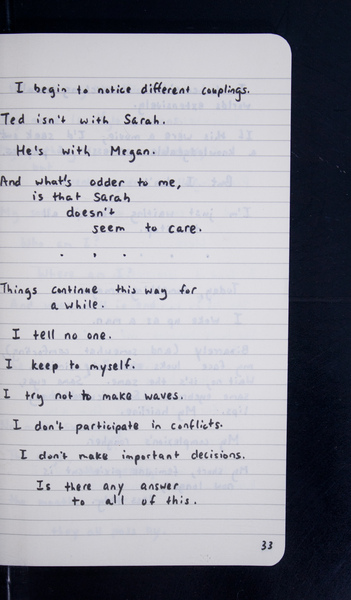 I begin to notice different couplings.
Ted isn't with Sarah.
He's with Megan.
And what's odder to me,
is that Sarah
doesn't
seem to care.
. , . . .
Things continue this way for
a while.
I tell no one.
I keep to myself.
I try not to make waves.
I don't participate in conflicts.
I don't make important decisions.
Is there any answer
to all of this.
33